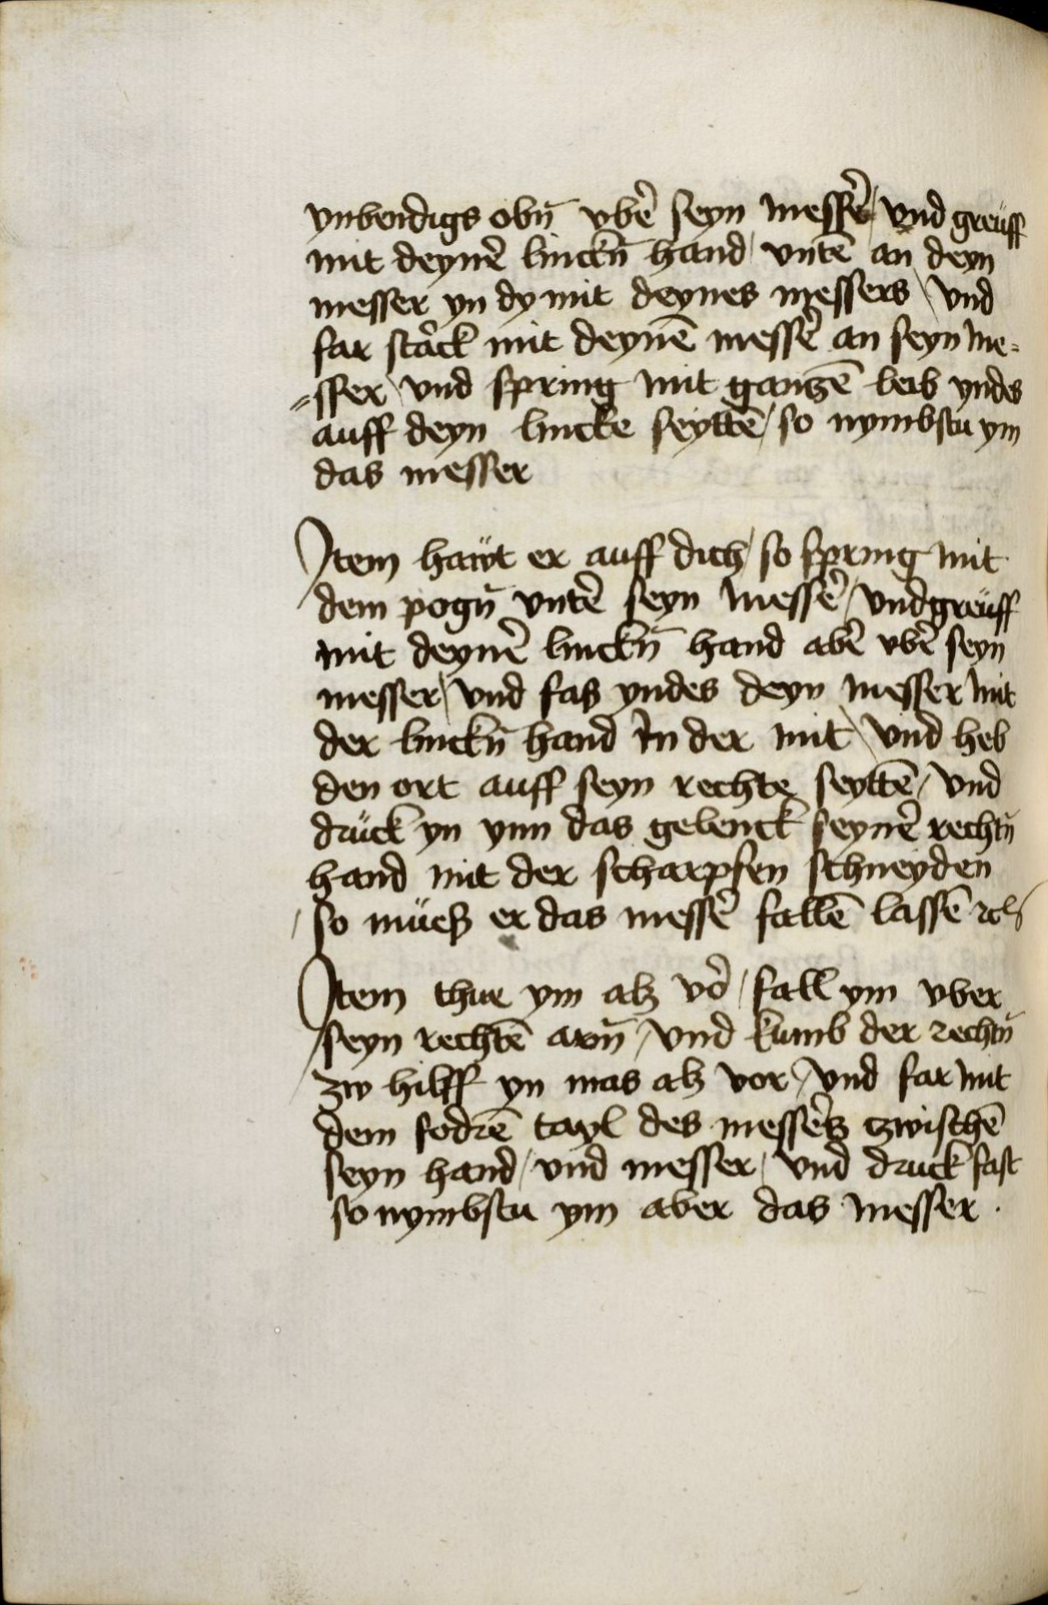 ynbendigs obn̄ vbe᷑ seyn messe᷑ / vnd greüff
mit deyne᷑ linckn̄ hand / vntē an deyn
messer yn dy mit deynes messers / vnd
far starck mit deynē messe᷑ an seyn me-
=sser / vnd spring mit ganzē leib yndes
auff deyn lincke seyttē / so nymbstu ym
das messer
Item haüt er auff dich / so spring mit
dem pogn̄ vnte᷑ seyn messe᷑ / vnd greüff
mit deyne᷑ linckn̄ hand abe᷑ vbe᷑ seyn
messer / vnd fas yndes deyn messer mit
der linckn̄ hand In der mit / vnd heb
den ort auff seyn rechte seyttē / vnd
drück yn ynn das gelenck seyne᷑ rechtn̄
hand mit der scharpfen schneyden
/ so müeß er das messe᷑ fallē lassē ꝛcꝭ
Item thue ym alz vo᷑ / fall ym vber
/ seyn rechtē arm̄ / vnd kumb der rechtn̄
/ zw hilff yn mas alz vor / vnd far mit
dem fodrē tayl des messe᷑s zwischē
seyn hand / vnd messer / vnd druck fast
so nymbstu ym aber das messer .